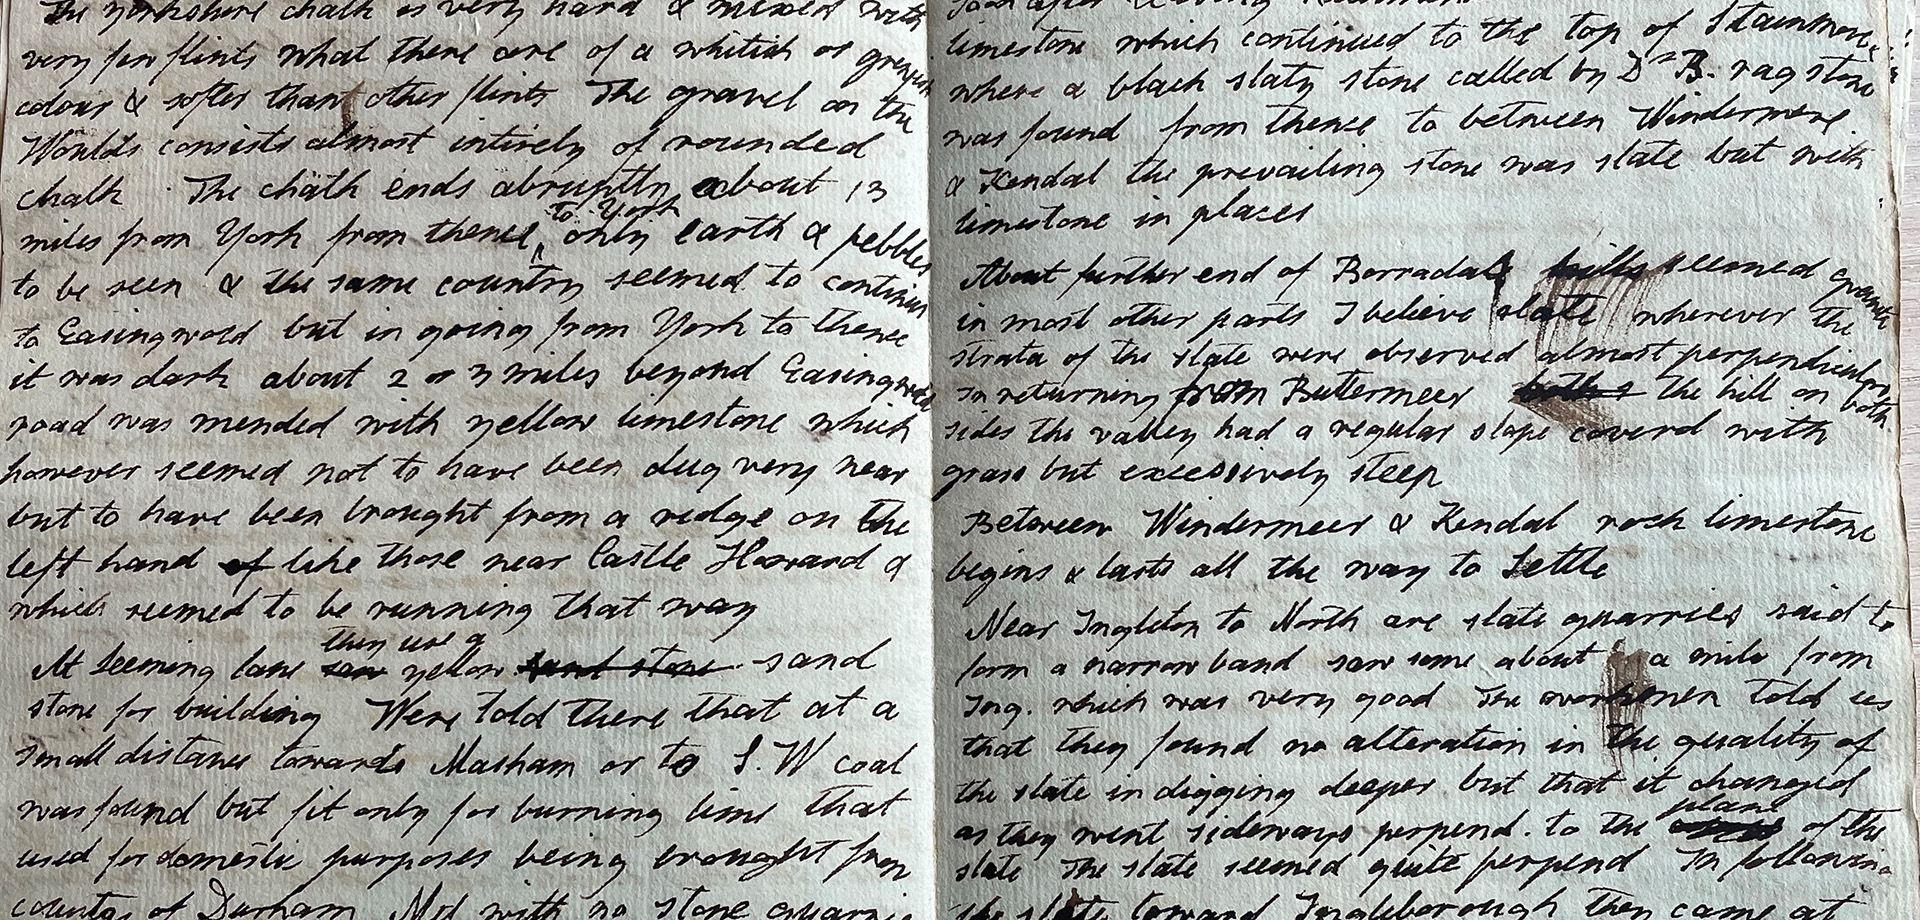 The yorkshire chalk is very hard & mixed with
very few flints what there are of a whitish or greyish
colour & softer than other flints The gravel on the
Woulds consists almost intirely of rounded
chalk. The chalk ends abruptly about 13
miles from York from thence to York only earth & pebbles
to be seen & the same country seemed to continue
to Easingwold but in going from York to thence
it was dark about 2 or 3 miles beyond Easingwold
road was mended with yellow limestone which
however seemed not to have been dug very near
but to have been brought from a ridge on the
left hand of like those near Castle Howard &
which seemed to be running that way
At Leeming lane saw they use a yellow sand stone sand
stone for building Were told there that at a
small distance towards Masham or to S.W coal
was found but fit only for burning lime that
used for domestic purposes being brought from
county of Durham Met with no stone quarries
Soon after leaving
limestone which continued to the top of Stainmore
where a black slaty stone called by Dr B. rag stone
was found from thence to between Windermere
& Kendal the prevailing stone was slate but with
limestone in places
About further end of Borradale hills seemed granite
in most other parts I believe slate wherever the
strata of the slate were observed almost perpendicular
In returning from Buttermeer the hill on both
sides the valley had a regular slope coverd with
grass but excessively steep
Between Windermeer & Kendal rock limestone
begins & lasts all the way to Settle
Near Ingleton to North are slate quarries said to
form a narrow band saw some about a mile from
Ing. which was very good The workmen told us
that they found no alteration in the quality of
the slate in digging deeper but that it changed
as they went sideways perpend. to the plane of the
slate The slate seemed quite perpend In following
the slate toward Ingleborough they came at